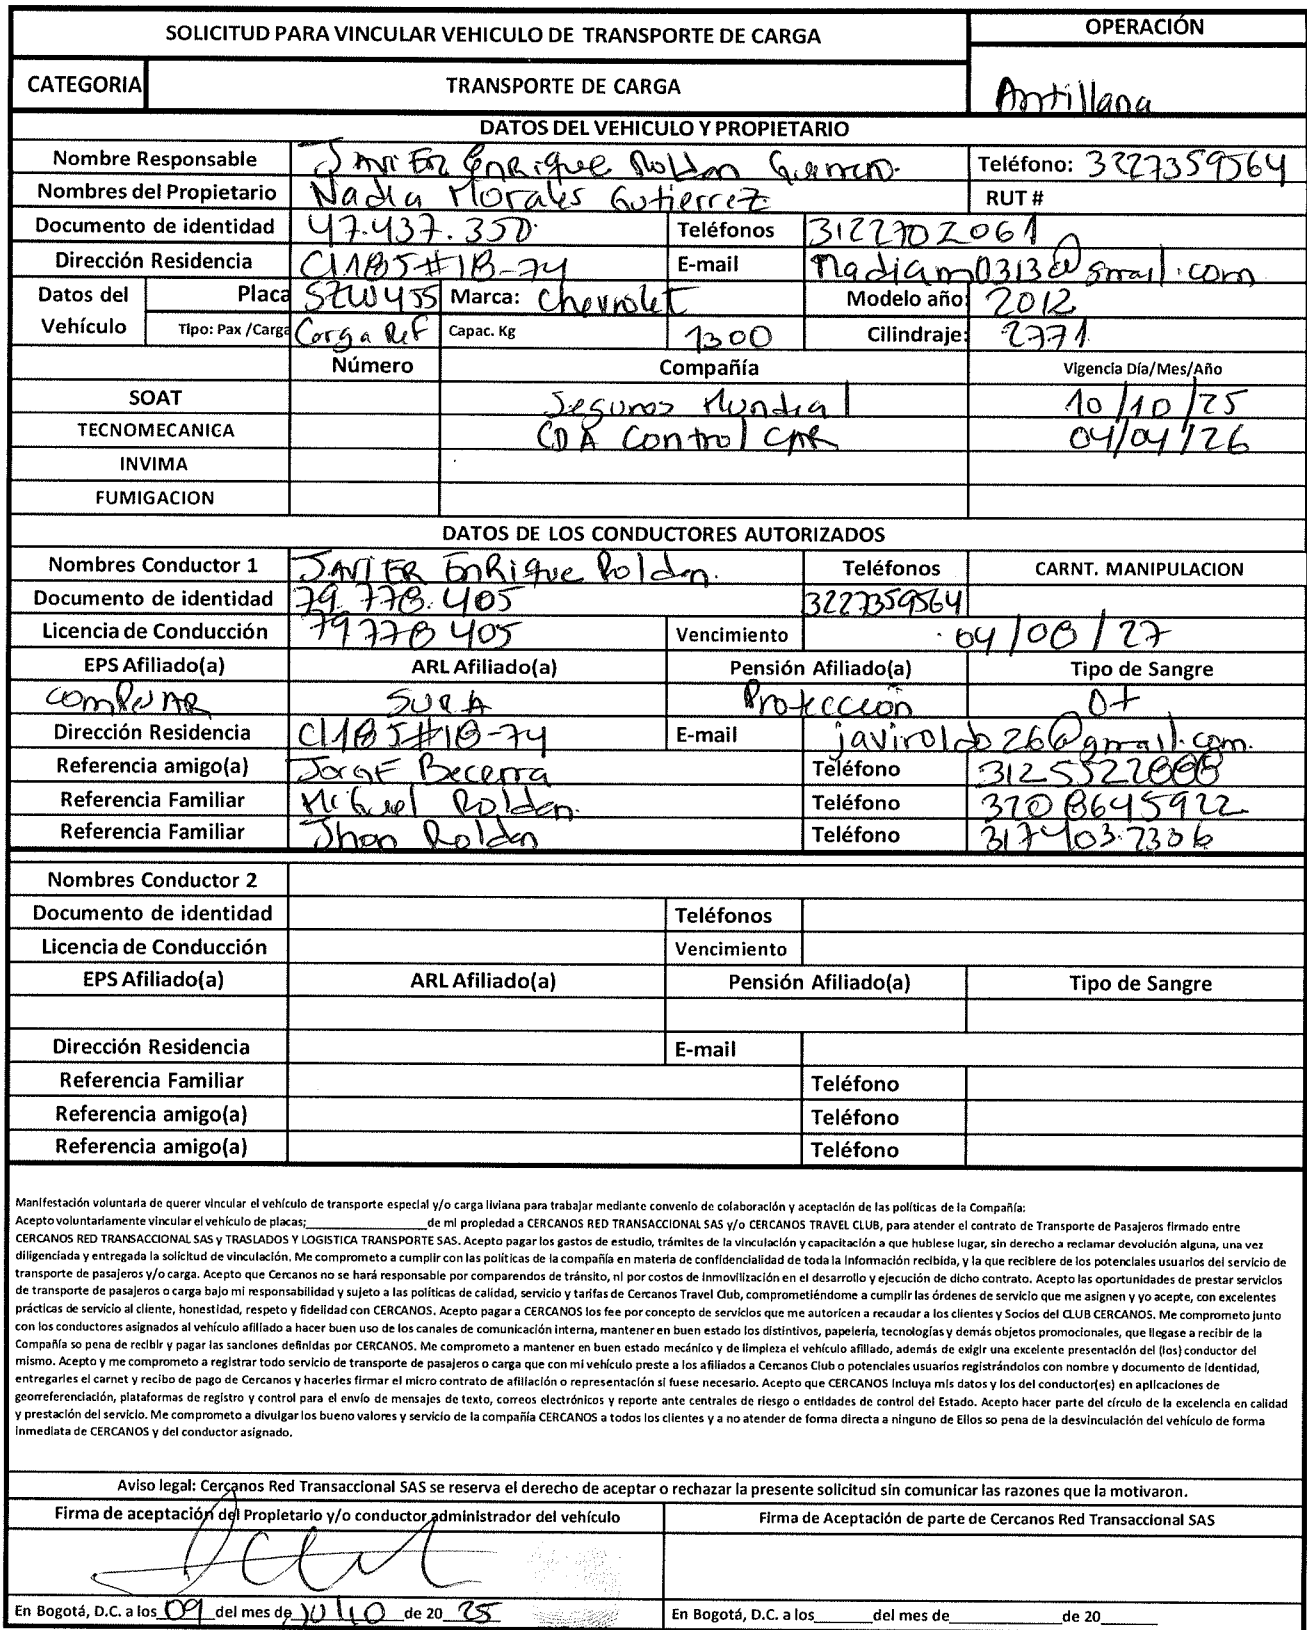 SOLICITUD PARA VINCULAR VEHICULO DE TRANSPORTE DE CARGA
OPERACIÓN
CATEGORIA
TRANSPORTE DE CARGA
Antillana
DATOS DEL VEHICULO Y PROPIETARIO
Nombre Responsable JAVIER Enrique Roldan Teléfono: 3227359564
Nombres del Propietario Nadia Morales Gutierrez RUT #
Documento de identidad 47.437.350 Teléfonos 3122702061
Dirección Residencia Cl 18 J # 1B-74 E-mail nadiam0313@gmail.com
Datos del Vehículo Placa SZW455 Marca: Chevrolet Modelo año: 2012
Tipo: Pax /Carga Carga Ref Capac. Kg 1300 Cilindraje: 2771
Número Compañía Vigencia Día/Mes/Año
SOAT Seguros Mundial 10/10/25
TECNOMECANICA CDA Control CAR 04/04/26
INVIMA
FUMIGACION
DATOS DE LOS CONDUCTORES AUTORIZADOS
Nombres Conductor 1 JAVIER EnRique Roldan. Teléfonos CARNT. MANIPULACION
Documento de identidad 79.778.405 3227359564
Licencia de Conducción 79778405 Vencimiento 04/08/27
EPS Afiliado(a) ARL Afiliado(a) Pensión Afiliado(a) Tipo de Sangre
SURA Protección O+
Dirección Residencia Cl 18 J # 1B-74 E-mail javiroldo26@gmail.com.
Referencia amigo(a) Jorge Becerra Teléfono 3125522888
Referencia Familiar Miguel Roldan. Teléfono 3208645922
Referencia Familiar Jhon Roldan Teléfono 317403.7336
Nombres Conductor 2
Documento de identidad Teléfonos
Licencia de Conducción Vencimiento
EPS Afiliado(a) ARL Afiliado(a) Pensión Afiliado(a) Tipo de Sangre
Dirección Residencia E-mail
Referencia Familiar Teléfono
Referencia amigo(a) Teléfono
Referencia amigo(a) Teléfono
Manifestación voluntaria de querer vincular el vehículo de transporte especial y/o carga liviana para trabajar mediante convenio de colaboración y aceptación de las políticas de la Compañía:
Acepto voluntariamente vincular el vehículo de placas;____________________de mi propiedad a CERCANOS RED TRANSACCIONAL SAS y/o CERCANOS TRAVEL CLUB, para atender el contrato de Transporte de Pasajeros firmado entre
CERCANOS RED TRANSACCIONAL SAS y TRASLADOS Y LOGISTICA TRANSPORTE SAS. Acepto pagar los gastos de estudio, trámites de la vinculación y capacitación a que hubiese lugar, sin derecho a reclamar devolución alguna, una vez
diligenciada y entregada la solicitud de vinculación. Me comprometo a cumplir con las políticas de la compañía en materia de confidencialidad de toda la Información recibida, y la que recibiere de los potenciales usuarios del servicio de
transporte de pasajeros y/o carga. Acepto que Cercanos no se hará responsable por comparendos de tránsito, ni por costos de Inmovilización en el desarrollo y ejecución de dicho contrato. Acepto las oportunidades de prestar servicios
de transporte de pasajeros o carga bajo mi responsabilidad y sujeto a las políticas de calidad, servicio y tarifas de Cercanos Travel Club, comprometiéndome a cumplir las órdenes de servicio que me asignen y yo acepte, con excelentes
prácticas de servicio al cliente, honestidad, respeto y fidelidad con CERCANOS. Acepto pagar a CERCANOS los fee por concepto de servicios que me autoricen a recaudar a los clientes y Socios del CLUB CERCANOS. Me comprometo junto
con los conductores asignados al vehículo afiliado a hacer buen uso de los canales de comunicación interna, mantener en buen estado los distintivos, papelería, tecnologías y demás objetos promocionales, que llegase a recibir de la
Compañía so pena de recibir y pagar las sanciones definidas por CERCANOS. Me comprometo a mantener en buen estado mecánico y de limpieza el vehículo afiliado, además de exigir una excelente presentación del (los) conductor del
mismo. Acepto y me comprometo a registrar todo servicio de transporte de pasajeros o carga que con mi vehículo preste a los afiliados a Cercanos Club o potenciales usuarios registrándolos con nombre y documento de Identidad,
entregarles el carnet y recibo de pago de Cercanos y hacerles firmar el micro contrato de afiliación o representación si fuese necesario. Acepto que CERCANOS Incluya mis datos y los del conductor(es) en aplicaciones de
georreferenciación, plataformas de registro y control para el envío de mensajes de texto, correos electrónicos y reporte ante centrales de riesgo o entidades de control del Estado. Acepto hacer parte del círculo de la excelencia en calidad
y prestación del servicio. Me comprometo a divulgar los bueno valores y servicio de la compañía CERCANOS a todos los clientes y a no atender de forma directa a ninguno de Ellos so pena de la desvinculación del vehículo de forma
Inmediata de CERCANOS y del conductor asignado.
Aviso legal: Cercanos Red Transaccional SAS se reserva el derecho de aceptar o rechazar la presente solicitud sin comunicar las razones que la motivaron.
Firma de aceptación del Propietario y/o conductor administrador del vehículo Firma de Aceptación de parte de Cercanos Red Transaccional SAS
En Bogotá, D.C. a los 09 del mes de Julio de 20 25 En Bogotá, D.C. a los_______del mes de____________de 20______